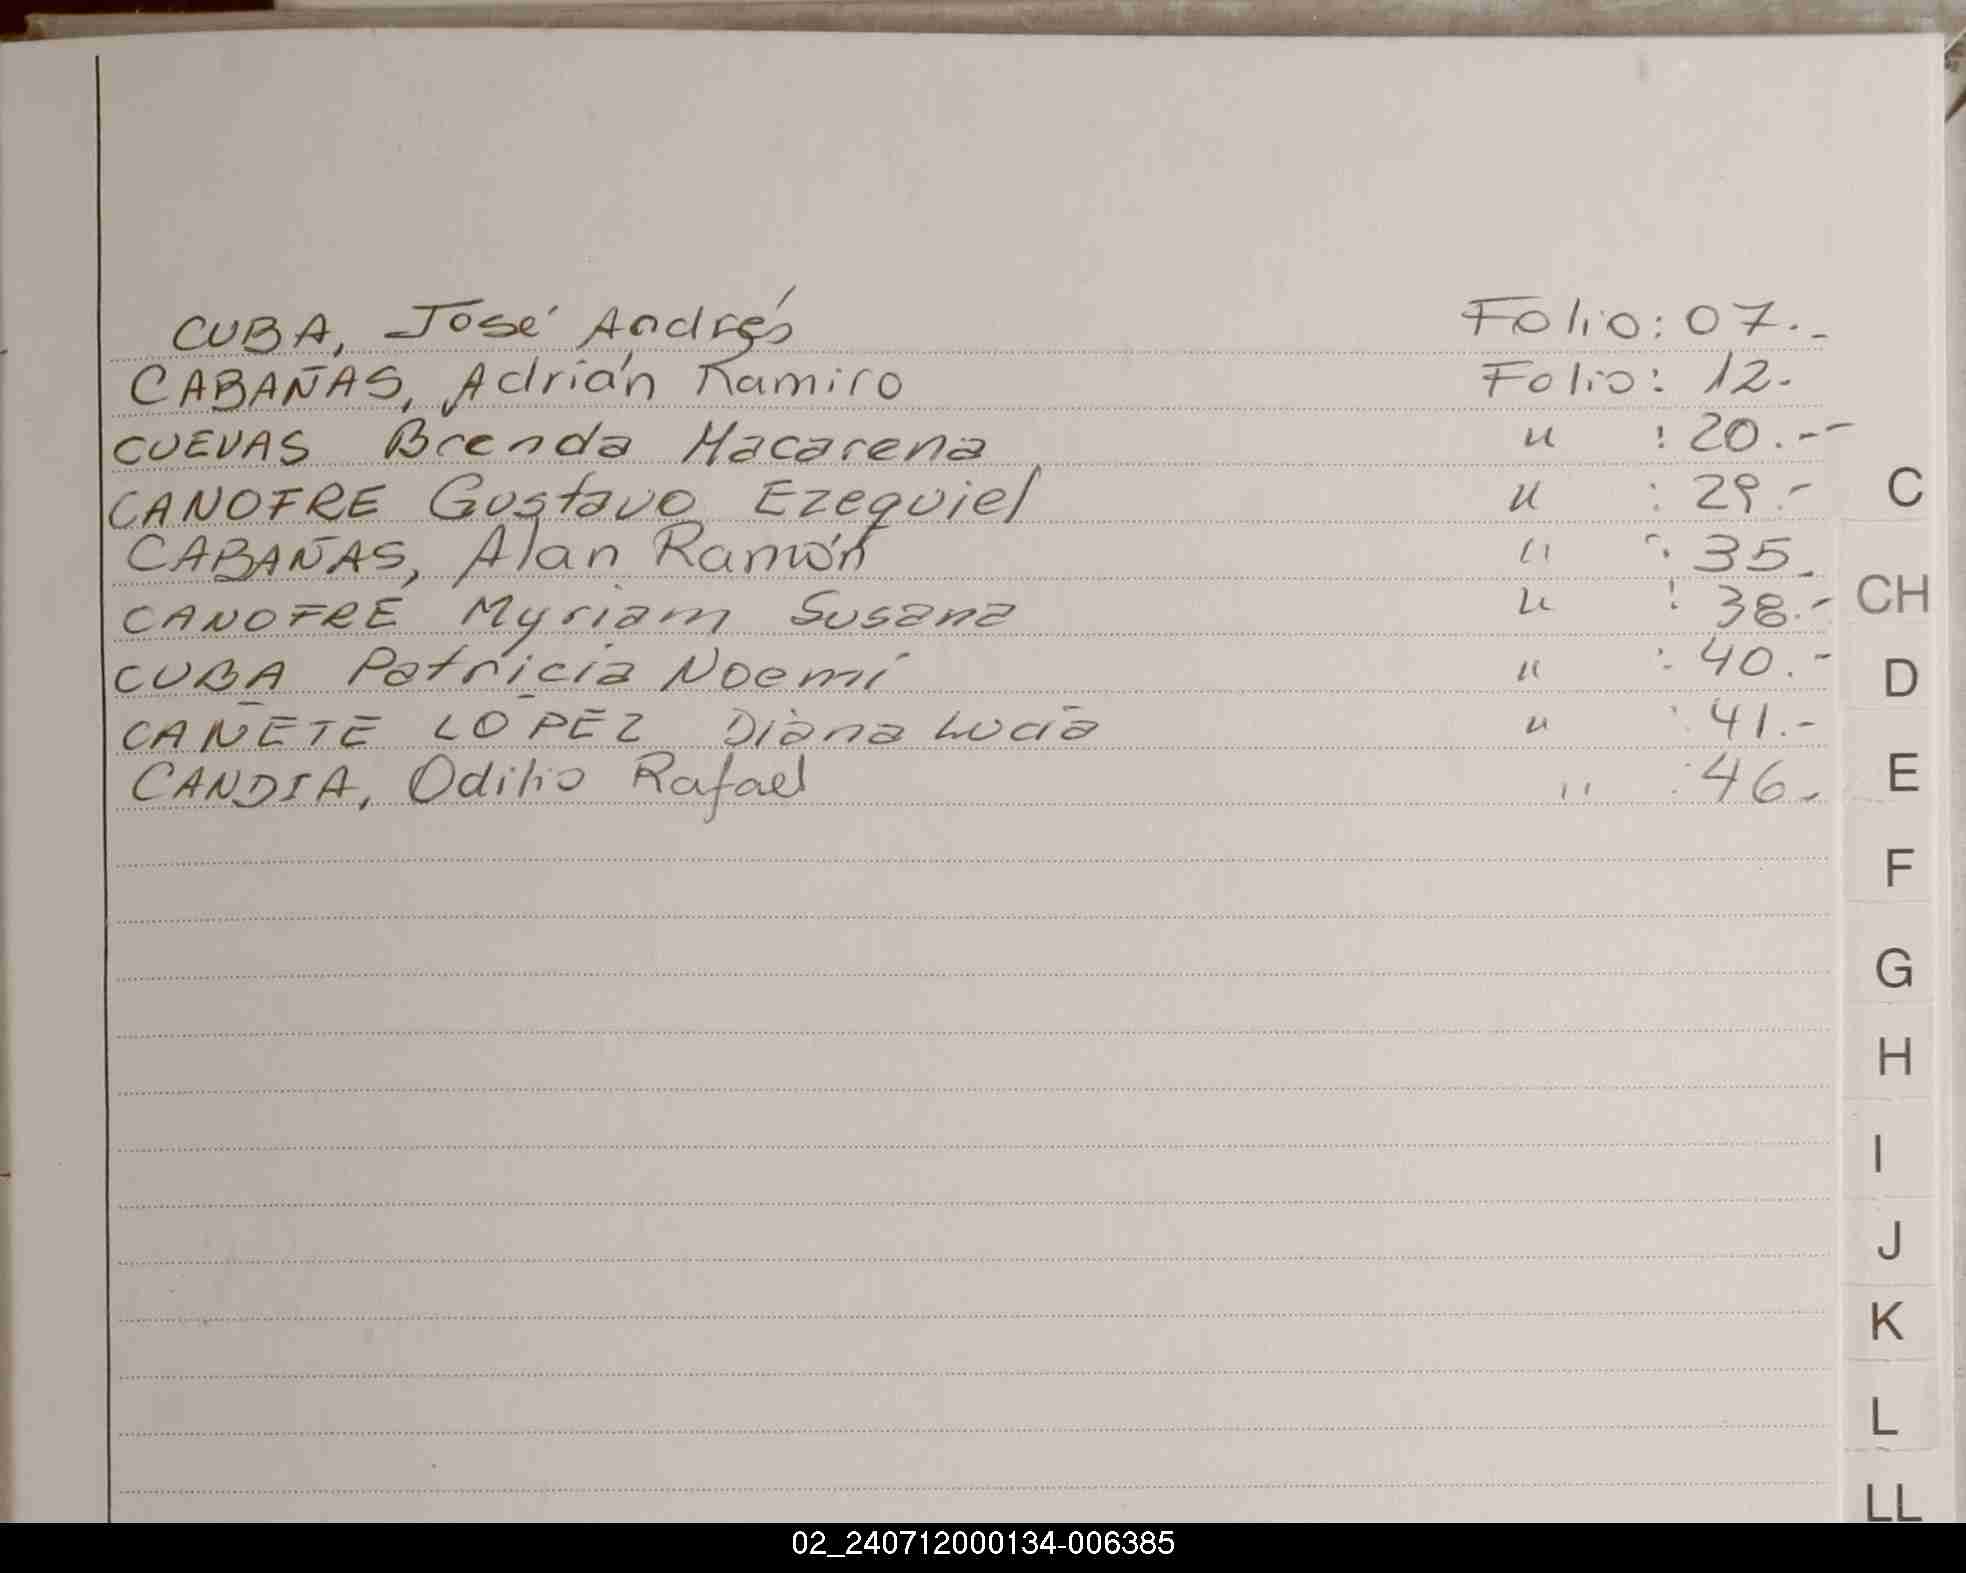 CUBA, José Andrés Folio: 07.-
CABAÑAS, Adrián Ramiro Folio: 12.
CUEVAS Brenda Macarena " : 20.--
CANOFRE Gustavo Ezequiel " : 29.-
CABAÑAS, Alan Ramón " : 35.
CANOFRE Myriam Susana " : 38.-
CUBA Patricia Noemí " : 40.-
CAÑETE LOPEZ Diana Lucía " : 41.-
CANDIA, Odilio Rafael " : 46.-
C
CH
D
E
F
G
H
I
J
K
L
LL
02_240712000134-006385